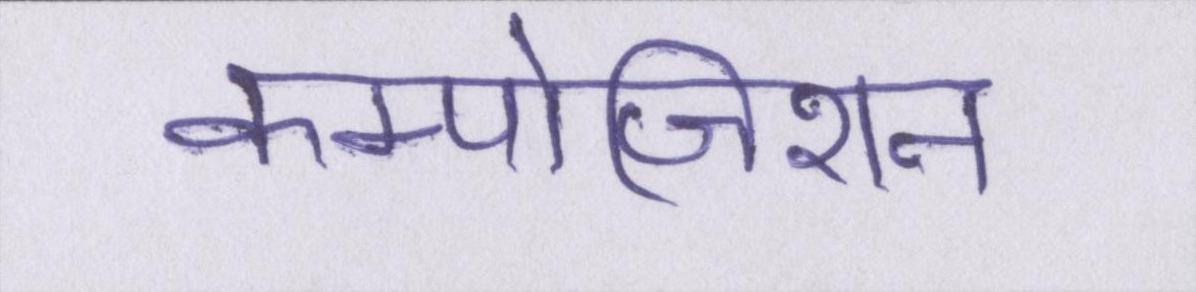 कम्पोजिशन